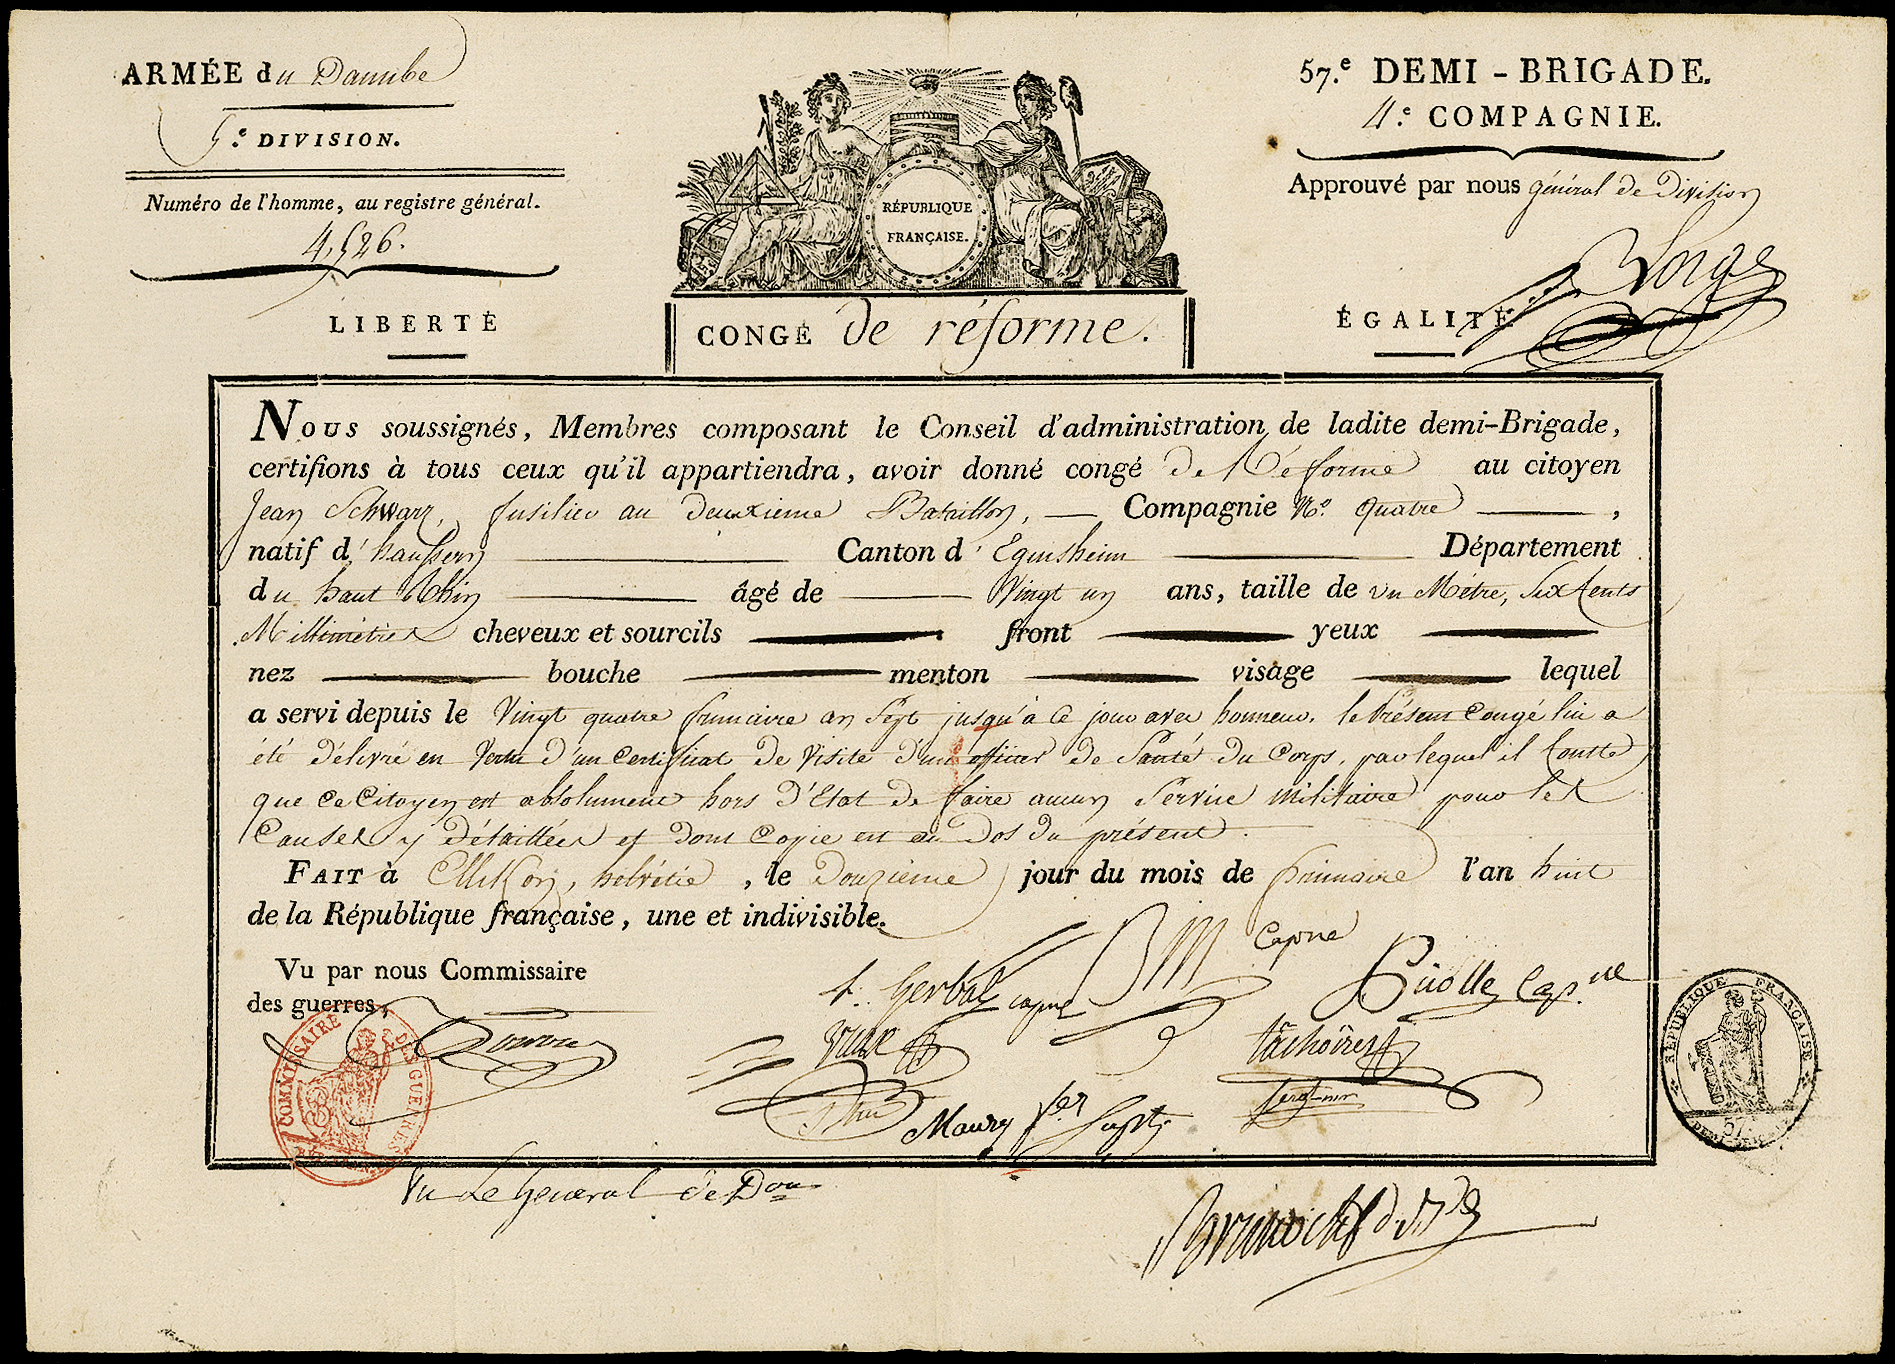 ARMÉE du Danube
5.e DIVISION.
Numéro de l'homme, au registre général.
4,526.
LIBERTÉ
RÉPUBLIQUE
FRANÇAISE.
CONGÉ de réforme.
57.e DEMI-BRIGADE.
4.e COMPAGNIE.
Approuvé par nous général de Division
Lorge
ÉGALITÉ
Nous soussignés, Membres composant le Conseil d'administration de ladite demi-Brigade,
certifions à tous ceux qu'il appartiendra, avoir donné congé de Réforme au citoyen
Jean Schwarz, fusilier au deuxieme Bataillon, — Compagnie No. quatre — ,
natif d'haussern — Canton d'Eguisheim — Département
du haut Rhin — âgé de — Vingt un ans, taille de un Mètre, Six Cents
Millimètres cheveux et sourcils — front — yeux —
nez — bouche — menton — visage — lequel
a servi depuis le Vingt quatre frimaire an Sept jusqu'à ce jour avec honneur. le Présent Congé lui a
été délivré en Vertu d'un Certificat de Visite d'un officier de Santé du Corps, par lequel il Conste
que ce Citoyen est absolument hors d'Etat de faire aucun Service militaire pour les
Causes y détaillées et dont Copie est au dos du présent.
FAIT à Ellikon, helvétie, le Douzieme jour du mois de frimaire l'an huit
de la République française, une et indivisible.
Vu par nous Commissaire
des guerres,
Gerbal capne
Capne
Cap.ne
Maury Ser
Sergt-mr
COMMISSAIRE DES GUERRES
RÉPUBLIQUE FRANÇAISE
57
DEMI-BRIGADE
Vu Le General de Don